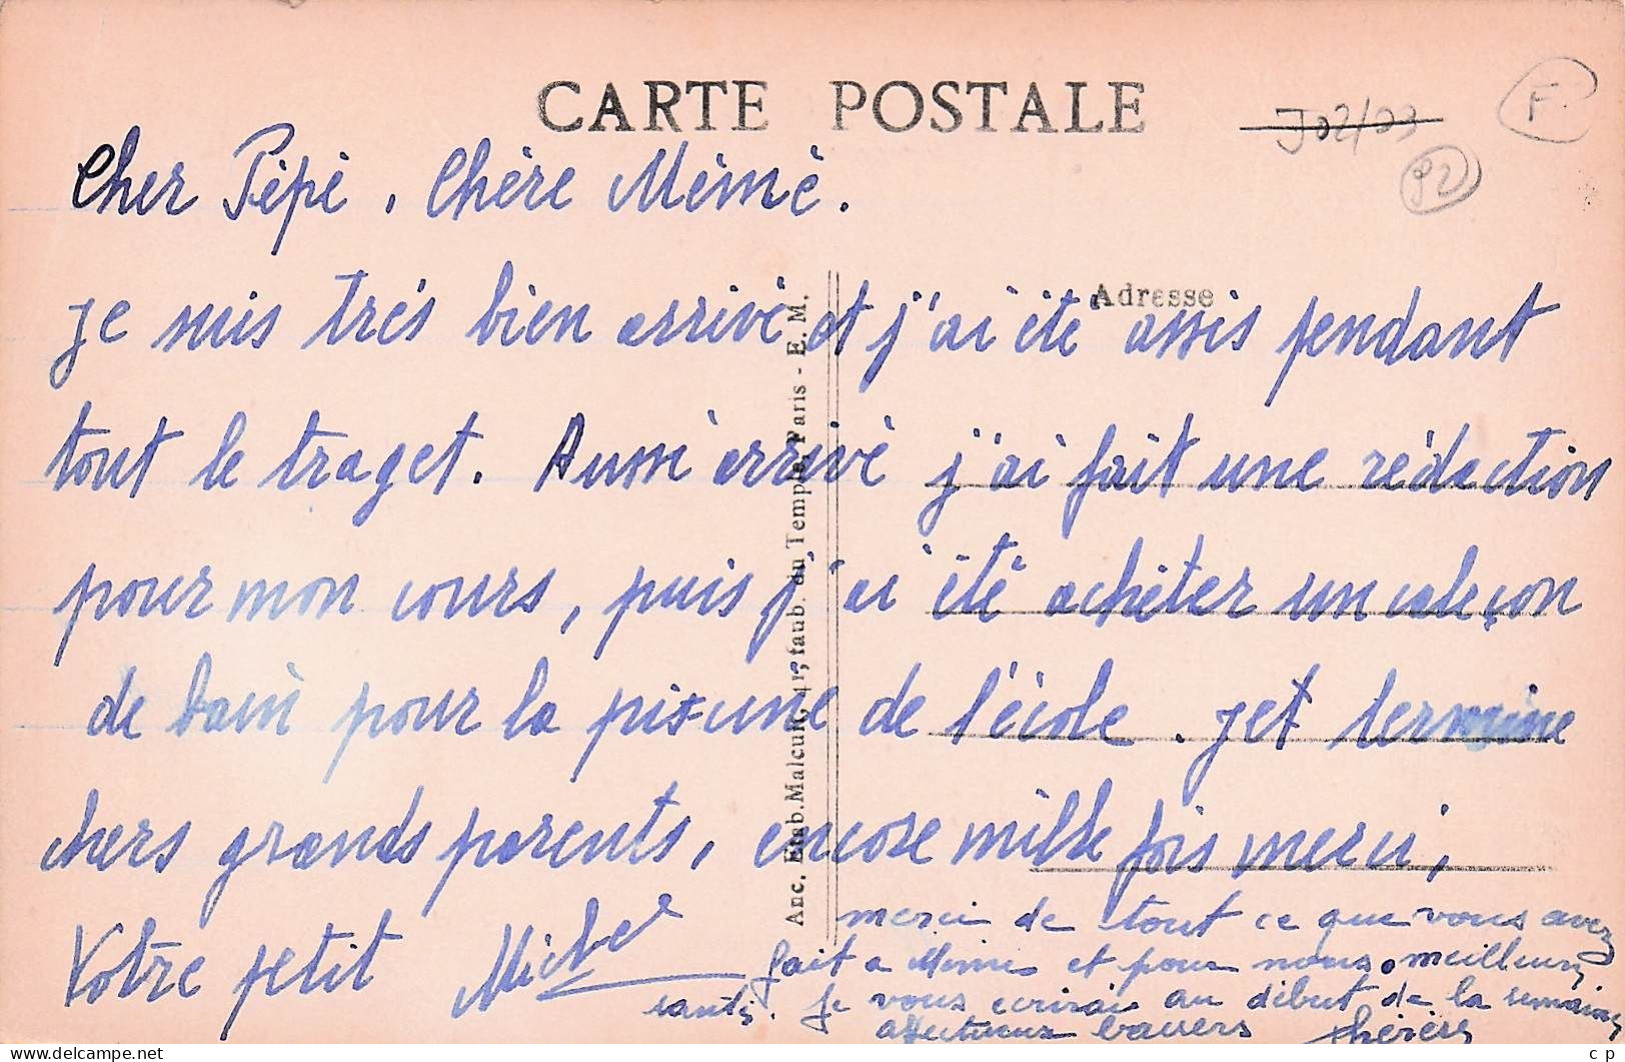 CARTE POSTALE
J02/03
F
92
Cher Pépé, Chère Mémé.
Adresse
je suis très bien arrivé et j'ai été assis pendant
tout le traget. Aussi arrivé j'ai fait une rédaction
pour mon cours, puis j'ai été achéter un caleçon
de bain pour la piscine de l'école. Je termine
chers grands parents, encore mille fois merci,
Votre petit Michel
merci de tout ce que vous avez
fait a Mémé et pour nous, meilleure
santé. Je vous ecrirai au début de la semaine
affectueux baisers Thérèse
Anc. Etab. Malcuit, 41, faub. du Temple, Paris - E. M.
c p